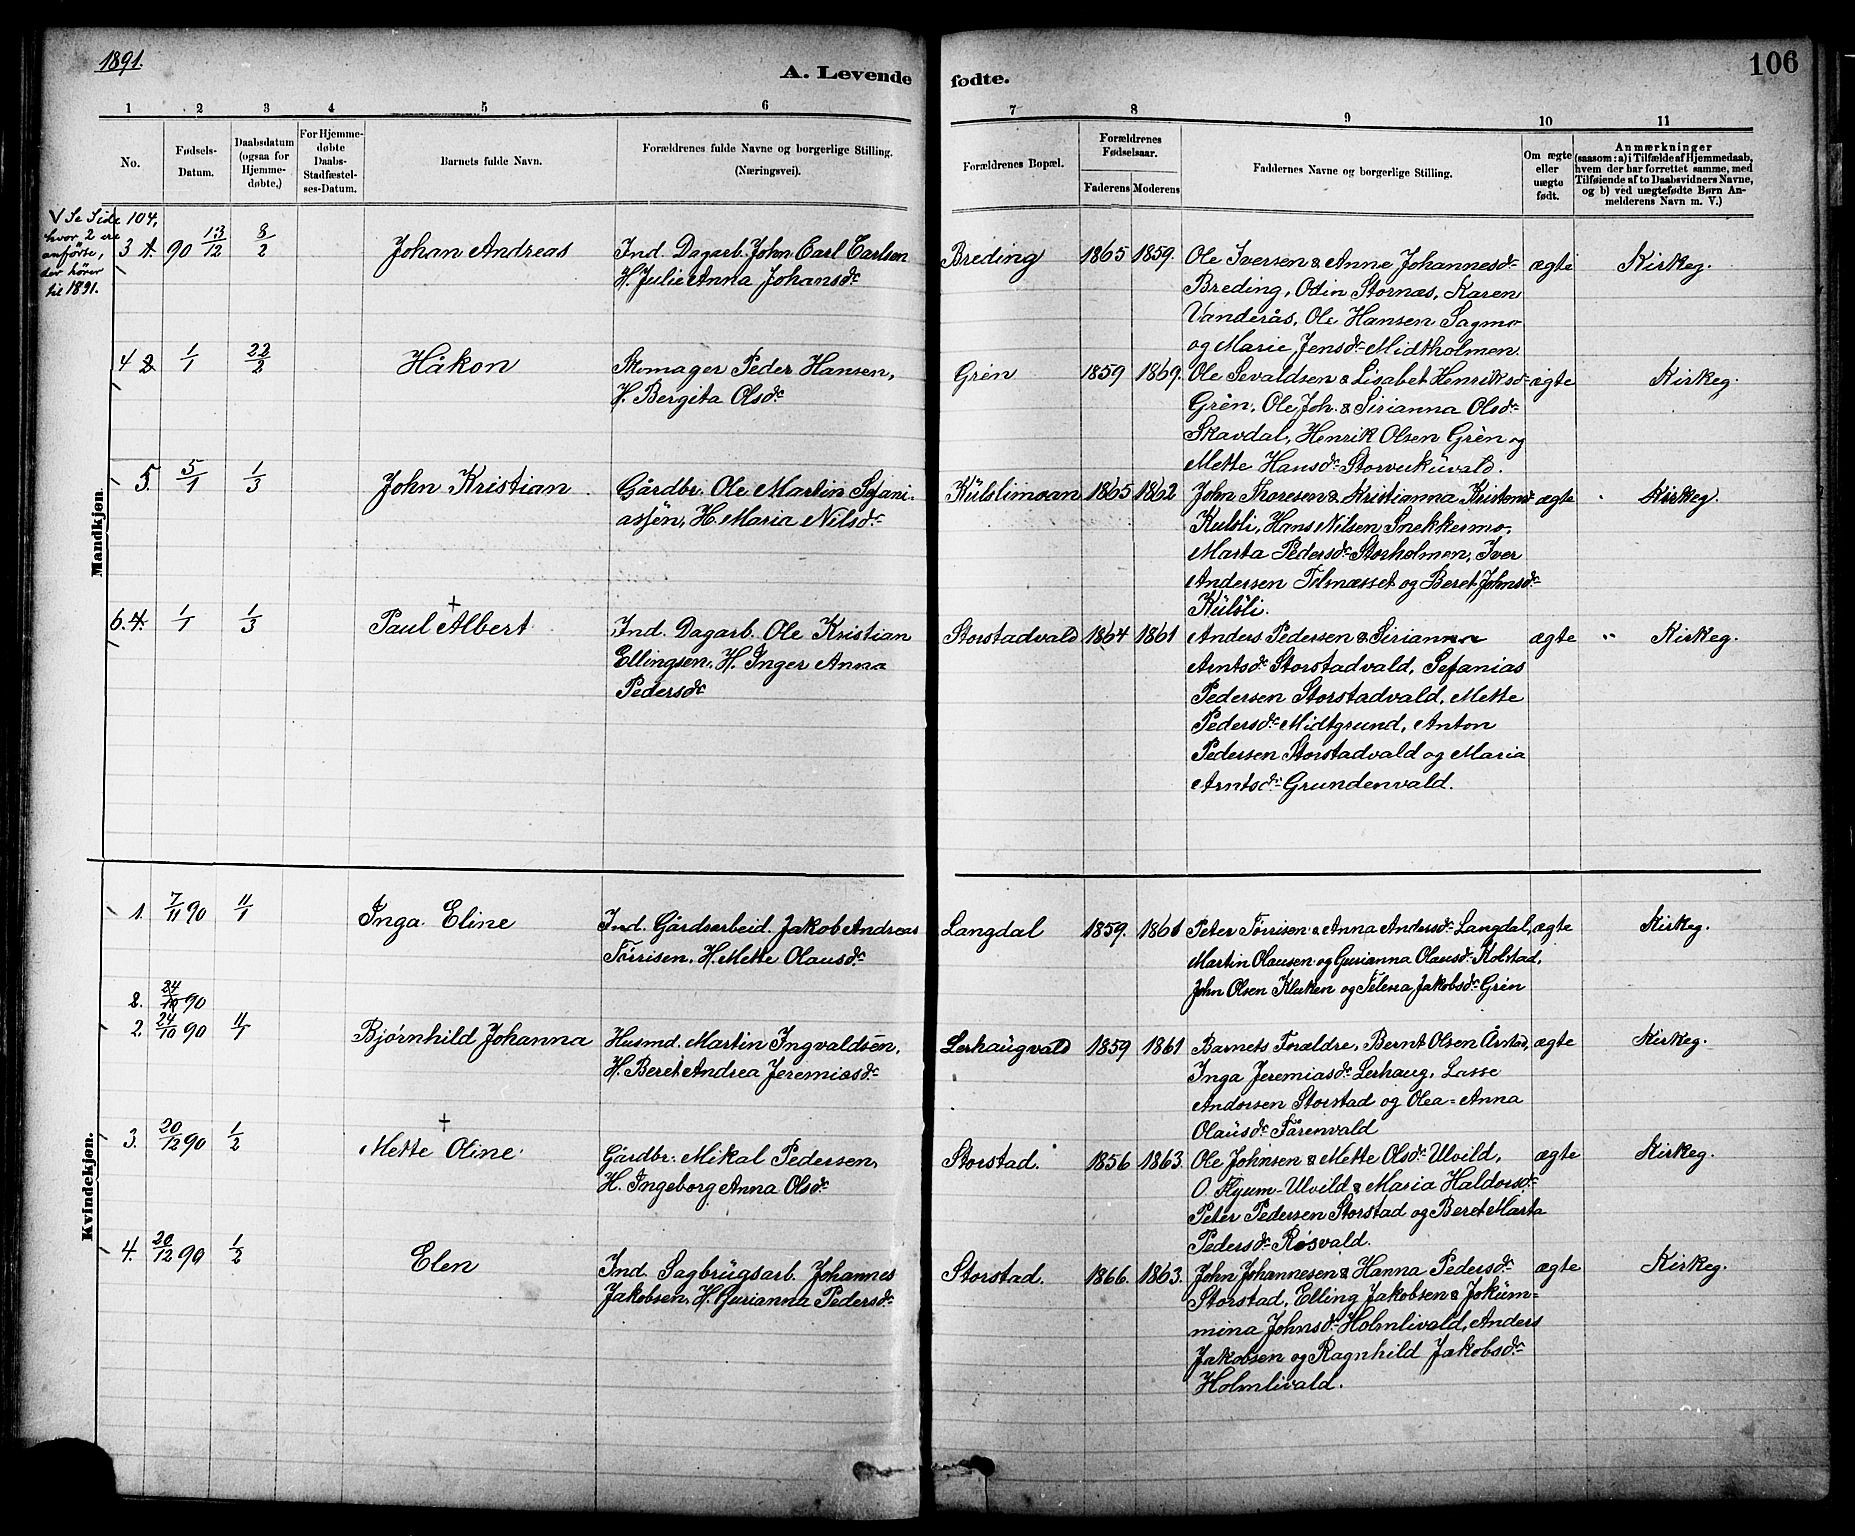 1891.
A. Levende fødte.
106
1 2 3 4 5 6 7 8 9 10 11
No.
Fødsels-
Datum.
Daabsdatum
(ogsaa for
Hjemme-
døbte,)
For Hjemme-
døbte
Daabs-
Stadfæstel-
ses-Datum.
Barnets fulde Navn.
Forældrenes fulde Navne og borgerlige Stilling.
(Næringsvei).
Forældrenes Bopæl.
Forældrenes
Fødselsaar.
Faderens Moderens
Faddernes Navne og borgerlige Stilling.
Om ægte
eller
uægte
født.
Anmærkninger
(saasom: a) i Tilfælde af Hjemmedaab,
hvem der har forrettet samme, med
Tilføiende af to Daabsvidners Navne,
og b) ved uægtefødte Børn An-
melderens Navn m. V.)
V Se Side 104,
hvor 2 ere
anførte,
der hører
til 1891.
Mandkjøn.
3 1. 90 13/12 8/2 Johan Andreas
Ind. Dagarb. John Carl Carlsen
H. Julie Anna Johansdr
Breding 1865 1859.
Ole Iversen & Anne Johannesdr
Breding, Odin Stornæs, Karen
Vanderås, Ole Hansen Sagmo
og Marie Jensdr Midtholmen.
ægte Kirkeg.
4 2 1/1 22/2 Håkon
Skomager Peder Hansen,
H. Bergita Olsdr
Grén 1859 1869.
Ole Sevaldsen & Lisabet Henriksdr
Grén, Ole Joh. & Sirianna Olsdr
Skavdal, Henrik Olsen Grén og
Mette Hansdr Storvukuvald.
ægte Kirkeg.
5. 5/1 1/3 John Kristian
Gårdbr. Ole Martin Sefani-
assen, H. Maria Nilsdr
Külslimoan 1865 1862
John Thoresen & Kristianna
Kulsli, Hans Nilsen Snekkermo,
Marta Pedersdr Storholmen, Iver
Andersen Tilmasset og Beret Johnsdr
Külsli.
ægte Kirkeg.
6. 4. 1/1 1/3 + Paul Albert
Ind. Dagarb. Ole Kristian
Ellingsen, H. Inger Anna
Pedersdr
Storstadvald 1864 1861
Anders Pedersen & Sirianna
Arntsdr Storstadvald, Sefanias
Pedersen Storstadvald, Mette
Pedersdr Midtgrund, Anton
Pedersen Storstadvald og Maria
Arntsdr Grundenvald.
ægte " Kirkeg.
Kvindekjøn.
1. 7/11 90 11/1 Inga Eline
Ind. Gårdsarbeid. Jakob Andreas
Tørrisen, H. Mette Olausdr
Langdal 1859. 1861
Peter Tørrisen & Anna Andersdr Langdal,
Martin Olausen og Gurianna Olausdr Kolstad,
John Olsen Kluken og Jakobsdr Grén
ægte Kirkeg.
2. 24/10 90
2. 24/10 90 11/1 Bjørnhild Johanna
Husmd. Martin Ingvaldsen,
H. Beret Andrea Jeremiasdr
Lerhaugvald 1859 1861
Barnets Forældre, Bernt Olsen Årstad,
Inga Jeremiasdr Lerhaug, Lasse
Andorsen Storstad og Olea-Anna
Olausdr Fårenvald
ægte Kirkeg.
3. 20/12 90 1/2 + Mette Oline
Gårdbr. Mikal Pedersen,
H. Ingeborg Anna Olsdr
Storstad. 1856 1863.
Ole Johnsen & Mette Olsdr Ulvild,
O. Ulvild & Maria Haldorsdr
Peter Pedersen Storstad og Beret Marta
Pedersdr Røsvald.
ægte Kirkeg.
4. 20/12 90 1/2 Elen
Ind. Sagbrugsarb. Johannes
Jakobsen, H. Gurianna Pedersdr
Storstad. 1866. 1863.
John Johannesen & Hanna Pedersdr
Storstad, Elling Jakobsen & Jokum-
mina Johnsdr Holmlivald, Anders
Jakobsen og Ragnhild Jakobsdr
Holmlivald.
ægte Kirkeg.